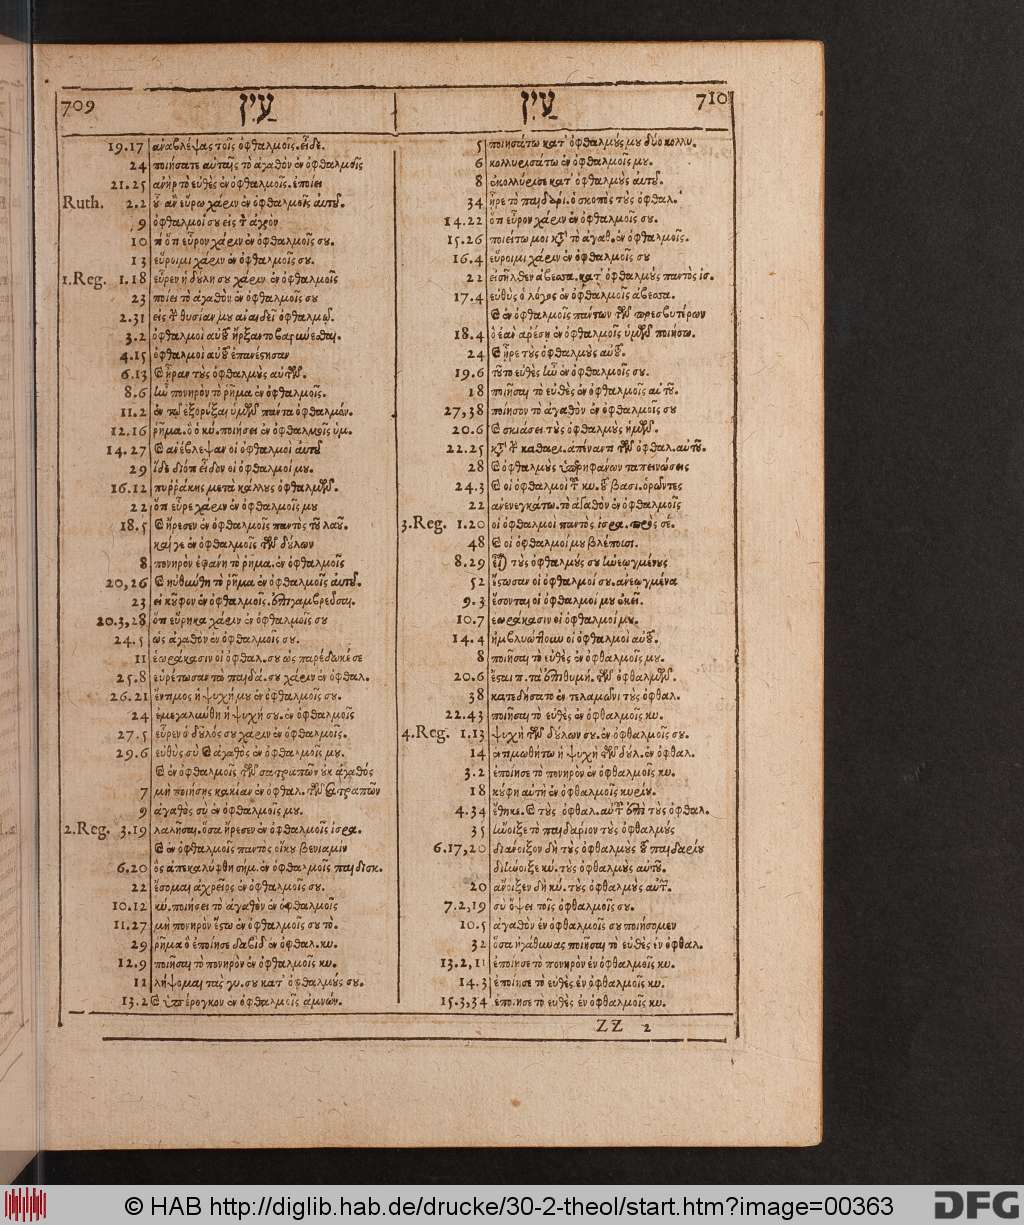 709 עַיִן
19.17 ἀναβλέψας τοῖς ὀφθαλμοῖς. εἶδε.
24 ποιήσατε αὐταῖς τὸ ἀγαθὸν ἐν ὀφθαλμοῖς
21.25 ἀνὴρ τὸ εὐθὲς ἐν ὀφθαλμοῖς. ἐποίει
Ruth. 2.2 οὗ ἂν εὕρω χάριν ἐν ὀφθαλμοῖς αὐτοῦ.
9 ὀφθαλμοί σου εἰς τὸν ἀγρὸν
10 τί ὅτι εὗρον χάριν ἐν ὀφθαλμοῖς σου.
13 εὕροιμι χάριν ἐν ὀφθαλμοῖς σου.
1.Reg. 1.18 εὗρεν ἡ δούλη σου χάριν ἐν ὀφθαλμοῖς
23 ποίει τὸ ἀγαθὸν ἐν ὀφθαλμοῖς σου
2.31 εἰς τὴν θυσίαν μου ἀναιδεῖ ὀφθαλμῷ.
3.2 ὀφθαλμοὶ αὐτοῦ ἤρξαντο βαρύνεσθαι.
4.15 ὀφθαλμοὶ αὐτοῦ ἐπανέστησαν
6.13 καὶ ἦραν τοὺς ὀφθαλμοὺς αὐτῶν.
8.6 ἦν πονηρὸν τὸ ῥῆμα ἐν ὀφθαλμοῖς.
11.2 ἐν τῷ ἐξορύξαι ὑμῶν πάντα ὀφθαλμόν.
12.16 ῥῆμα. ὃ ὁ κύ. ποιήσει ἐν ὀφθαλμοῖς ὑμ.
14.27 καὶ ἀνέβλεψαν οἱ ὀφθαλμοὶ αὐτοῦ
29 ἴδε διότι εἶδον οἱ ὀφθαλμοί μου.
16.12 πυῤῥάκης μετὰ κάλλους ὀφθαλμῶν.
22 ὅτι εὗρε χάριν ἐν ὀφθαλμοῖς μου
18.5 καὶ ἤρεσεν ἐν ὀφθαλμοῖς παντὸς τοῦ λαοῦ.
καί γε ἐν ὀφθαλμοῖς τῶν δούλων
8 πονηρὸν ἐφάνη τὸ ῥῆμα. ἐν ὀφθαλμοῖς
20,26 καὶ ηὐθύνθη τὸ ῥῆμα ἐν ὀφθαλμοῖς αὐτοῦ.
23 εἰ κοῦφον ἐν ὀφθαλμοῖς. ἐπιγαμβρεῦσαι.
20.3,28 ὅτι εὕρηκα χάριν ἐν ὀφθαλμοῖς σου
24.5 ὡς ἀγαθὸν ἐν ὀφθαλμοῖς σου.
11 ἑωράκασιν οἱ ὀφθαλ. σου ὡς παρέδωκέ σε
25.8 εὑρέτωσαν τὰ παιδά. σου χάριν ἐν ὀφθαλ.
26.21 ἔντιμος ἡ ψυχή μου ἐν ὀφθαλμοῖς σου.
24 ἐμεγαλύνθη ἡ ψυχή σου. ἐν ὀφθαλμοῖς
27.5 εὗρεν ὁ δοῦλός σου χάριν ἐν ὀφθαλμοῖς.
29.6 εὐθὺς σὺ καὶ ἀγαθὸς ἐν ὀφθαλμοῖς μου.
καὶ ἐν ὀφθαλμοῖς τῶν σατραπῶν οὐκ ἀγαθός
7 μὴ ποιήσῃς κακίαν ἐν ὀφθαλ. τῶν σατραπῶν
9 ἀγαθὸς σὺ ἐν ὀφθαλμοῖς μου.
2.Reg. 3.19 λαλῆσαι. ὅσα ἤρεσεν ἐν ὀφθαλμοῖς ἰσρα.
καὶ ἐν ὀφθαλμοῖς παντὸς οἴκου βενιαμίν
6.20 ὃς ἀπεκαλύφθη σήμ. ἐν ὀφθαλμοῖς παιδισκ.
22 ἔσομαι ἀχρεῖος ἐν ὀφθαλμοῖς σου.
10.12 κύ. ποιήσει τὸ ἀγαθὸν ἐν ὀφθαλμοῖς
11.27 μὴ πονηρὸν ἔστω ἐν ὀφθαλμοῖς σου τὸ.
29 ῥῆμα ὃ ἐποίησε δαβὶδ ἐν ὀφθαλ. κυ.
12.9 ποιῆσαι τὸ πονηρὸν ἐν ὀφθαλμοῖς κυ.
11 λήψομαι τὰς γυ. σου κατ' ὀφθαλμούς σου.
13.2 καὶ ὑπέρογκον ἐν ὀφθαλμοῖς ἀμνών.
עַיִן 710
5 ποιησάτω κατ' ὀφθαλμούς μου δύο κολλυ.
6 κολλυρισάτω ἐν ὀφθαλμοῖς μου.
8 ἐκολλύρισε κατ' ὀφθαλμοὺς αὐτοῦ.
34 ἦρε τὸ παιδάρι. ὁ σκοπὸς τοὺς ὀφθαλ.
14.22 ὅτι εὗρον χάριν ἐν ὀφθαλμοῖς σου.
15.26 ποιείτω μοι κατὰ τὸ ἀγαθ. ἐν ὀφθαλμοῖς.
16.4 εὕροιμι χάριν ἐν ὀφθαλμοῖς σου
22 εἰσῆλθεν ἀβεσσα. κατ' ὀφθαλμοὺς παντὸς ἰσ.
17.4 εὐθὺς ὁ λόγος ἐν ὀφθαλμοῖς ἀβεσσα.
καὶ ἐν ὀφθαλμοῖς πάντων τῶν πρεσβυτέρων
18.4 ὃ ἐὰν ἀρέσῃ ἐν ὀφθαλμοῖς ὑμῶν ποιήσω.
24 καὶ ἦρε τοὺς ὀφθαλμοὺς αὐτοῦ.
19.6 τοῦτο εὐθὲς ἦν ἐν ὀφθαλμοῖς σου.
18 ποιῆσαι τὸ εὐθὲς ἐν ὀφθαλμοῖς αὐτοῦ.
27,38 ποίησον τὸ ἀγαθὸν ἐν ὀφθαλμοῖς σου
20.6 καὶ σκιάσει τοὺς ὀφθαλμοὺς ἡμῶν.
22.25 κατὰ τὴν καθαρι. ἀπέναντι τῶν ὀφθαλ. αὐτοῦ.
28 καὶ ὀφθαλμοὺς ὑπερηφάνων ταπεινώσεις
24.3 καὶ οἱ ὀφθαλμοὶ τοῦ κυ. τοῦ βασι. ὁρῶντες
22 ἀνενεγκάτω. τὸ ἀγαθὸν ἐν ὀφθαλμοῖς
3.Reg. 1.20 οἱ ὀφθαλμοὶ παντὸς ἰσρα. πρὸς σέ.
48 καὶ οἱ ὀφθαλμοί μου βλέπουσι.
8.29 εἶναι τοὺς ὀφθαλμούς σου ἠνεῳγμένους
52 ἔστωσαν οἱ ὀφθαλμοί σου. ἀνεῳγμένα
9.3 ἔσονται οἱ ὀφθαλμοί μου ἐκεῖ.
10.7 ἑωράκασιν οἱ ὀφθαλμοί μου.
14.4 ἠμβλυώπουν οἱ ὀφθαλμοὶ αὐτοῦ.
8 ποιῆσαι τὸ εὐθὲς ἐν ὀφθαλμοῖς μου.
20.6 ἔσται π. τὰ ἐπιθυμή. τῶν ὀφθαλμῶν.
38 κατεδήσατο ἐν τελαμῶνι τοὺς ὀφθαλ.
22.43 ποιῆσαι τὸ εὐθὲς ἐν ὀφθαλμοῖς κυ.
4.Reg. 1.13 ψυχὴ τῶν δούλων σου. ἐν ὀφθαλμοῖς σου.
14 ἐντιμωθήτω ἡ ψυχὴ τῶν δούλ. ἐν ὀφθαλ.
3.2 ἐποίησε τὸ πονηρὸν ἐν ὀφθαλμοῖς κυ.
18 κούφη αὐτὴ ἐν ὀφθαλμοῖς κυρίου.
4.34 ἔθηκε. καὶ τοὺς ὀφθαλ. αὐτοῦ ἐπὶ τοὺς ὀφθαλ.
35 ἤνοιξε τὸ παιδάριον τοὺς ὀφθαλμούς
6.17,20 διάνοιξον δὴ τοὺς ὀφθαλμοὺς τοῦ παιδαρίου
διήνοιξε κύ. τοὺς ὀφθαλμοὺς αὐτοῦ.
20 ἄνοιξεν δὴ κύ. τοὺς ὀφθαλμοὺς αὐτῶν.
7.2,19 σὺ ὄψει τοῖς ὀφθαλμοῖς σου.
10.5 ἀγαθὸν ἐν ὀφθαλμοῖς σου ποιήσομεν
32 ὅσα ἠγάθυνας ποιῆσαι τὸ εὐθὲς ἐν ὀφθαλ.
13.2,11 ἐποίησε τὸ πονηρὸν ἐν ὀφθαλμοῖς κυ.
14.3 ἐποίησε τὸ εὐθὲς. ἐν ὀφθαλμοῖς κυ.
15.3,34 ἐποίησε τὸ εὐθὲς ἐν ὀφθαλμοῖς κυ.
ZZ 2
© HAB http://diglib.hab.de/drucke/30-2-theol/start.htm?image=00363
DFG